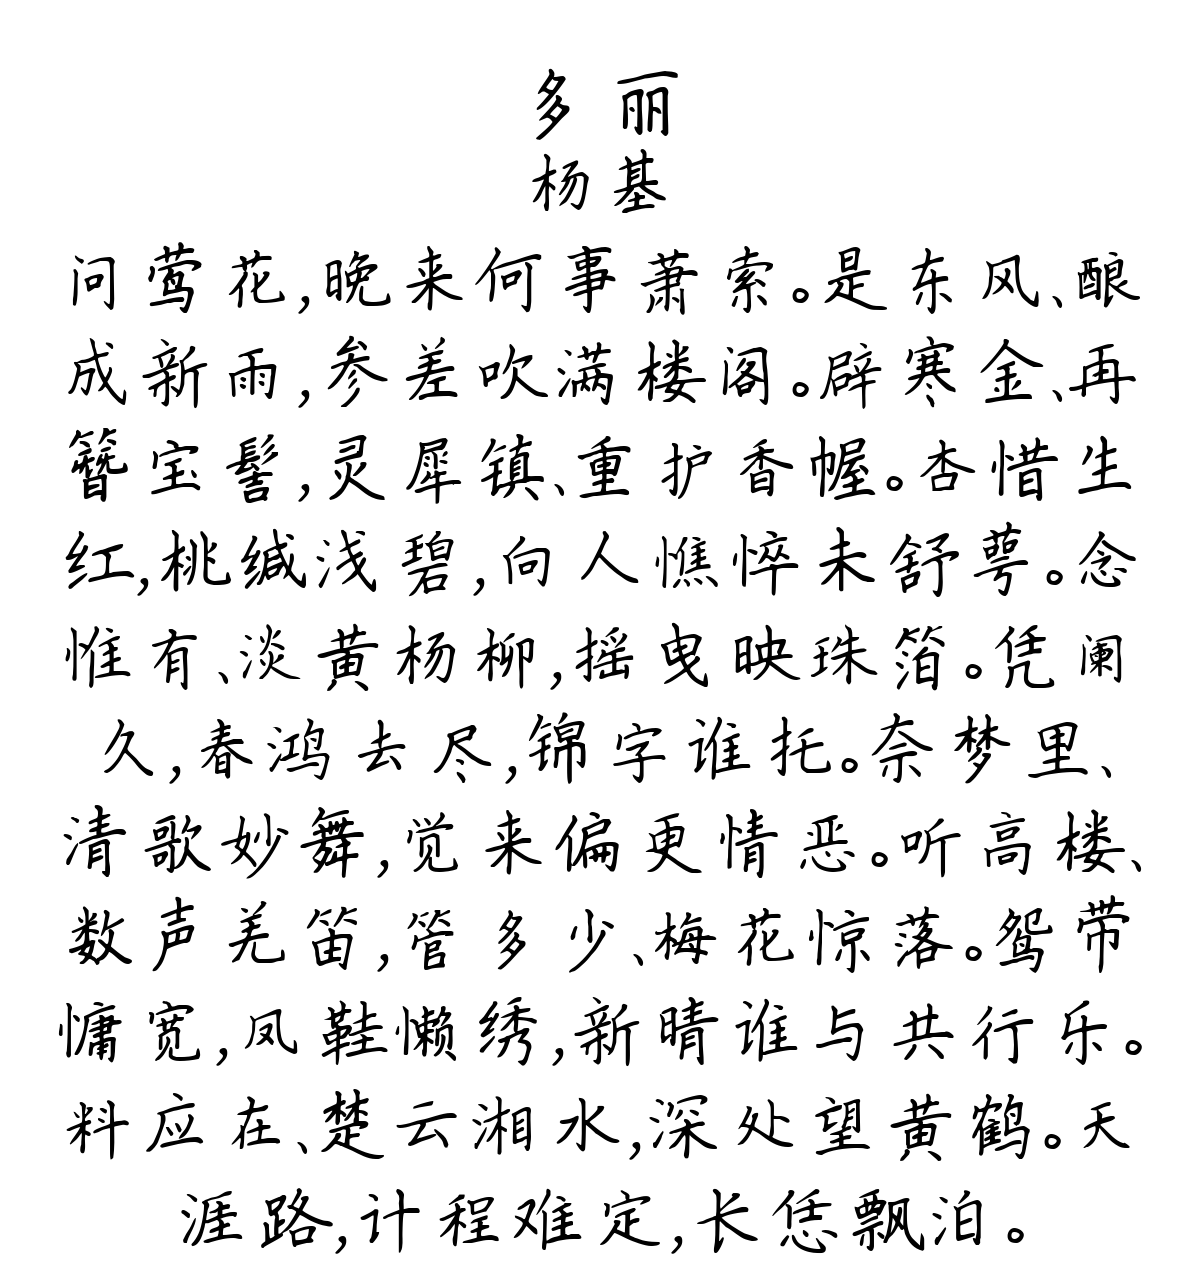 多丽
杨基
问莺花,晚来何事萧索。是东风、酿
成新雨,参差吹满楼阁。辟寒金、再
簪宝髻,灵犀镇、重护香幄。杏惜生
红,桃缄浅碧,向人憔悴未舒萼。念
惟有、淡黄杨柳,摇曳映珠箔。凭阑
久,春鸿去尽,锦字谁托。奈梦里、
清歌妙舞,觉来偏更情恶。听高楼、
数声羌笛,管多少、梅花惊落。鸳带
慵宽,凤鞋懒绣,新晴谁与共行乐。
料应在、楚云湘水,深处望黄鹤。天
涯路,计程难定,长恁飘泊。